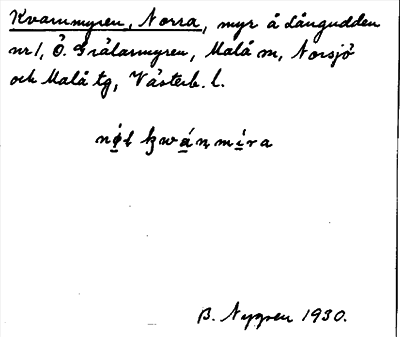 Kvarnmyren, Norra, myr å Långudden
nr 1, Ö. Grålarmyren, Malå sn, Norsjö
och Malå tg, Västerb. l.
B. Nygren 1930.